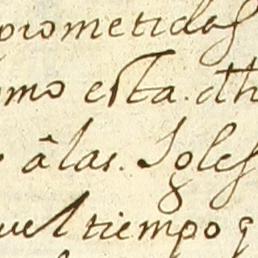 prometidas
omo esta. dh
âlas. Igles
uel tiempo q